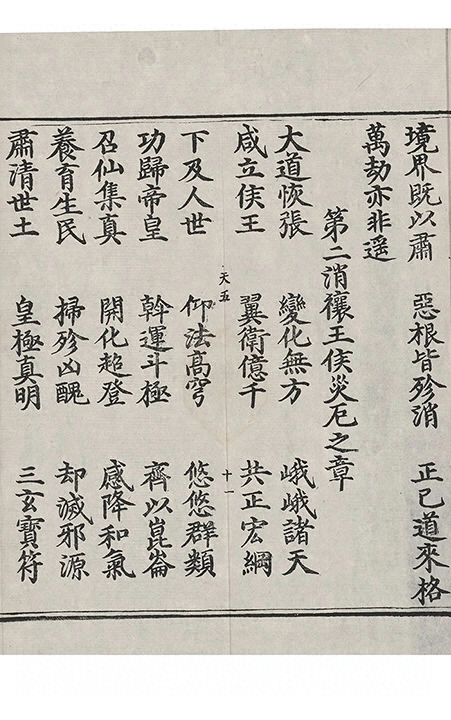 境界既以肅　惡根皆殄消　正己道來格
萬劫亦非遥
第二消禳王侯災厄之章
大道恢張　變化無方　峨峨諸天
咸立侯王　翼衛億千　共正宏綱
天五　十一
下及人世　仰法高穹　悠悠群類
功歸帝皇　斡運斗極　齊以崑崙
召仙集真　開化超登　感降和氣
養育生民　掃殄凶醜　却滅邪源
肅清世土　皇極真明　三玄寶符